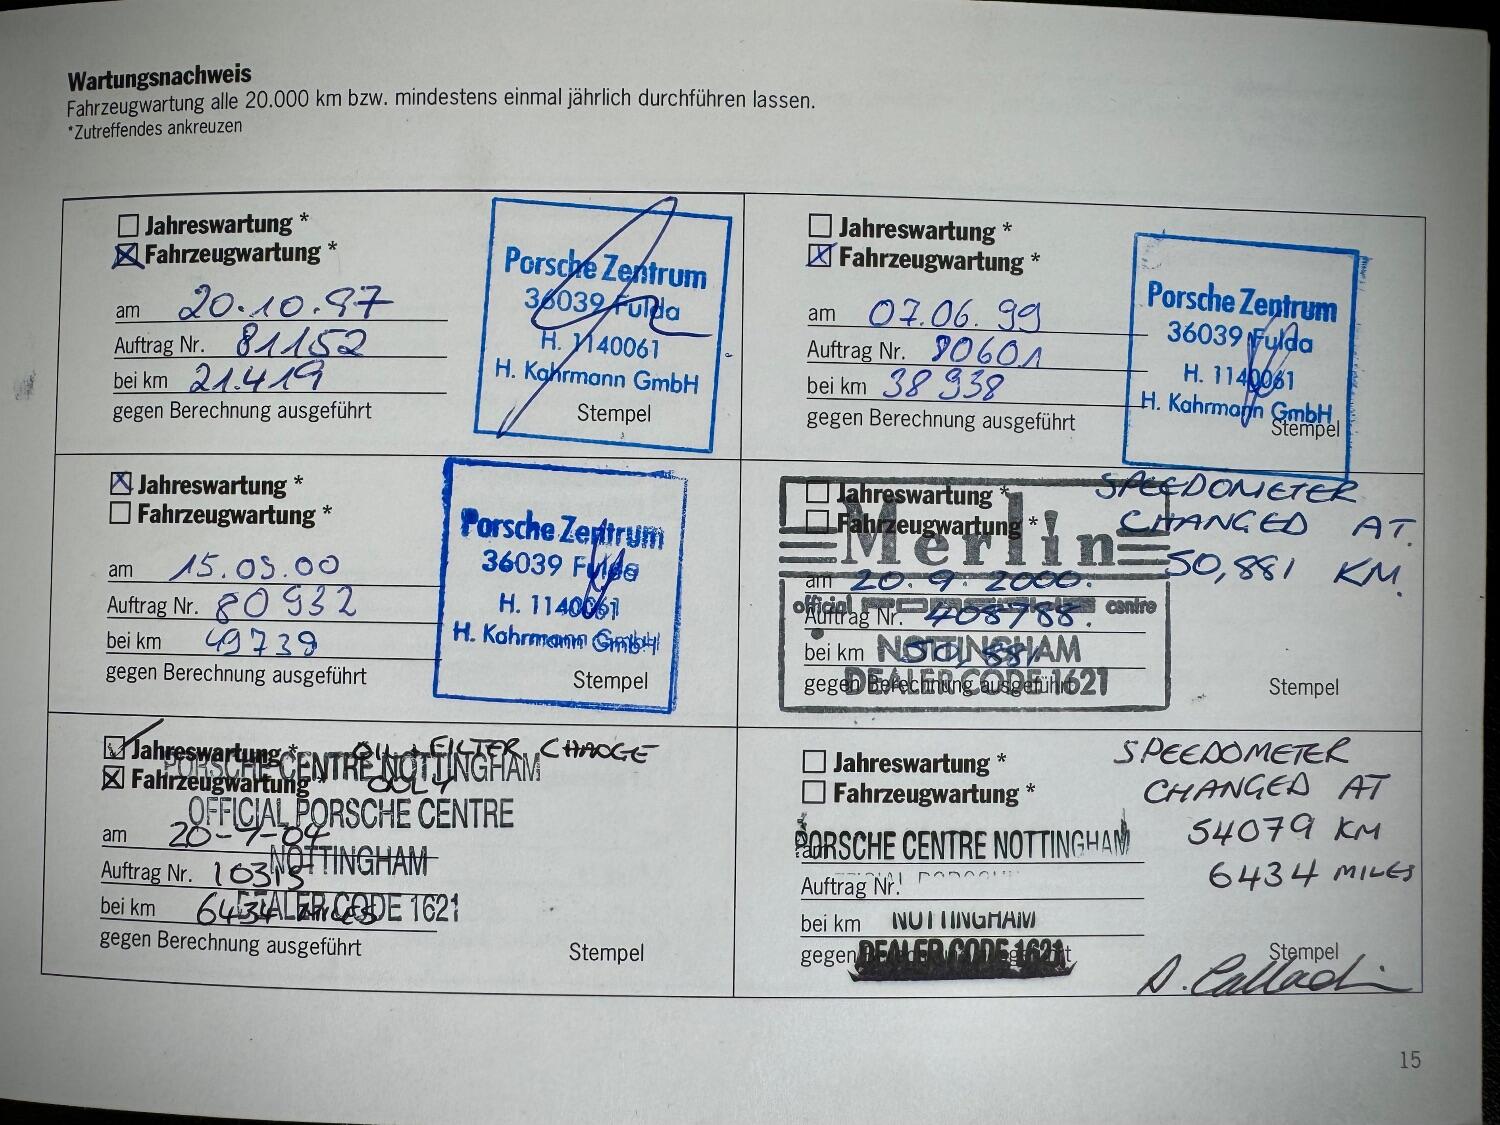 Wartungsnachweis
Fahrzeugwartung alle 20.000 km bzw. mindestens einmal jährlich durchführen lassen.
*Zutreffendes ankreuzen
Jahreswartung *
Fahrzeugwartung *
am 20.10.97
Auftrag Nr. 81152
bei km 21.419
gegen Berechnung ausgeführt
Porsche Zentrum
36039 Fulda
H. 1140061
H. Kahrmann GmbH
Stempel
Jahreswartung *
Fahrzeugwartung *
am 07.06.99
Auftrag Nr. 90601
bei km 38938
gegen Berechnung ausgeführt
Porsche Zentrum
36039 Fulda
H. 1140061
H. Kahrmann GmbH
Stempel
Jahreswartung *
Fahrzeugwartung *
am 15.03.00
Auftrag Nr. 80932
bei km 49739
gegen Berechnung ausgeführt
Porsche Zentrum
36039 Fulda
H. 1140061
H. Kahrmann GmbH
Stempel
Jahreswartung *
Fahrzeugwartung *
am 20.9.2000.
Auftrag Nr. 408788.
bei km 50,881
gegen Berechnung ausgeführt
Merlin
official PORSCHE centre
NOTTINGHAM
DEALER CODE 1621
SPEEDOMETER
CHANGED AT.
50,881 KM.
Stempel
Jahreswartung *
Fahrzeugwartung *
OIL + FILTER CHANGE
ONLY
am 20-7-04
Auftrag Nr. 10315
bei km 6434 MILES
gegen Berechnung ausgeführt
PORSCHE CENTRE NOTTINGHAM
OFFICIAL PORSCHE CENTRE
NOTTINGHAM
DEALER CODE 1621
Stempel
Jahreswartung *
Fahrzeugwartung *
am
Auftrag Nr.
bei km
gegen
PORSCHE CENTRE NOTTINGHAM
NOTTINGHAM
DEALER CODE 1621
SPEEDOMETER
CHANGED AT
54079 KM
6434 MILES
Stempel
15